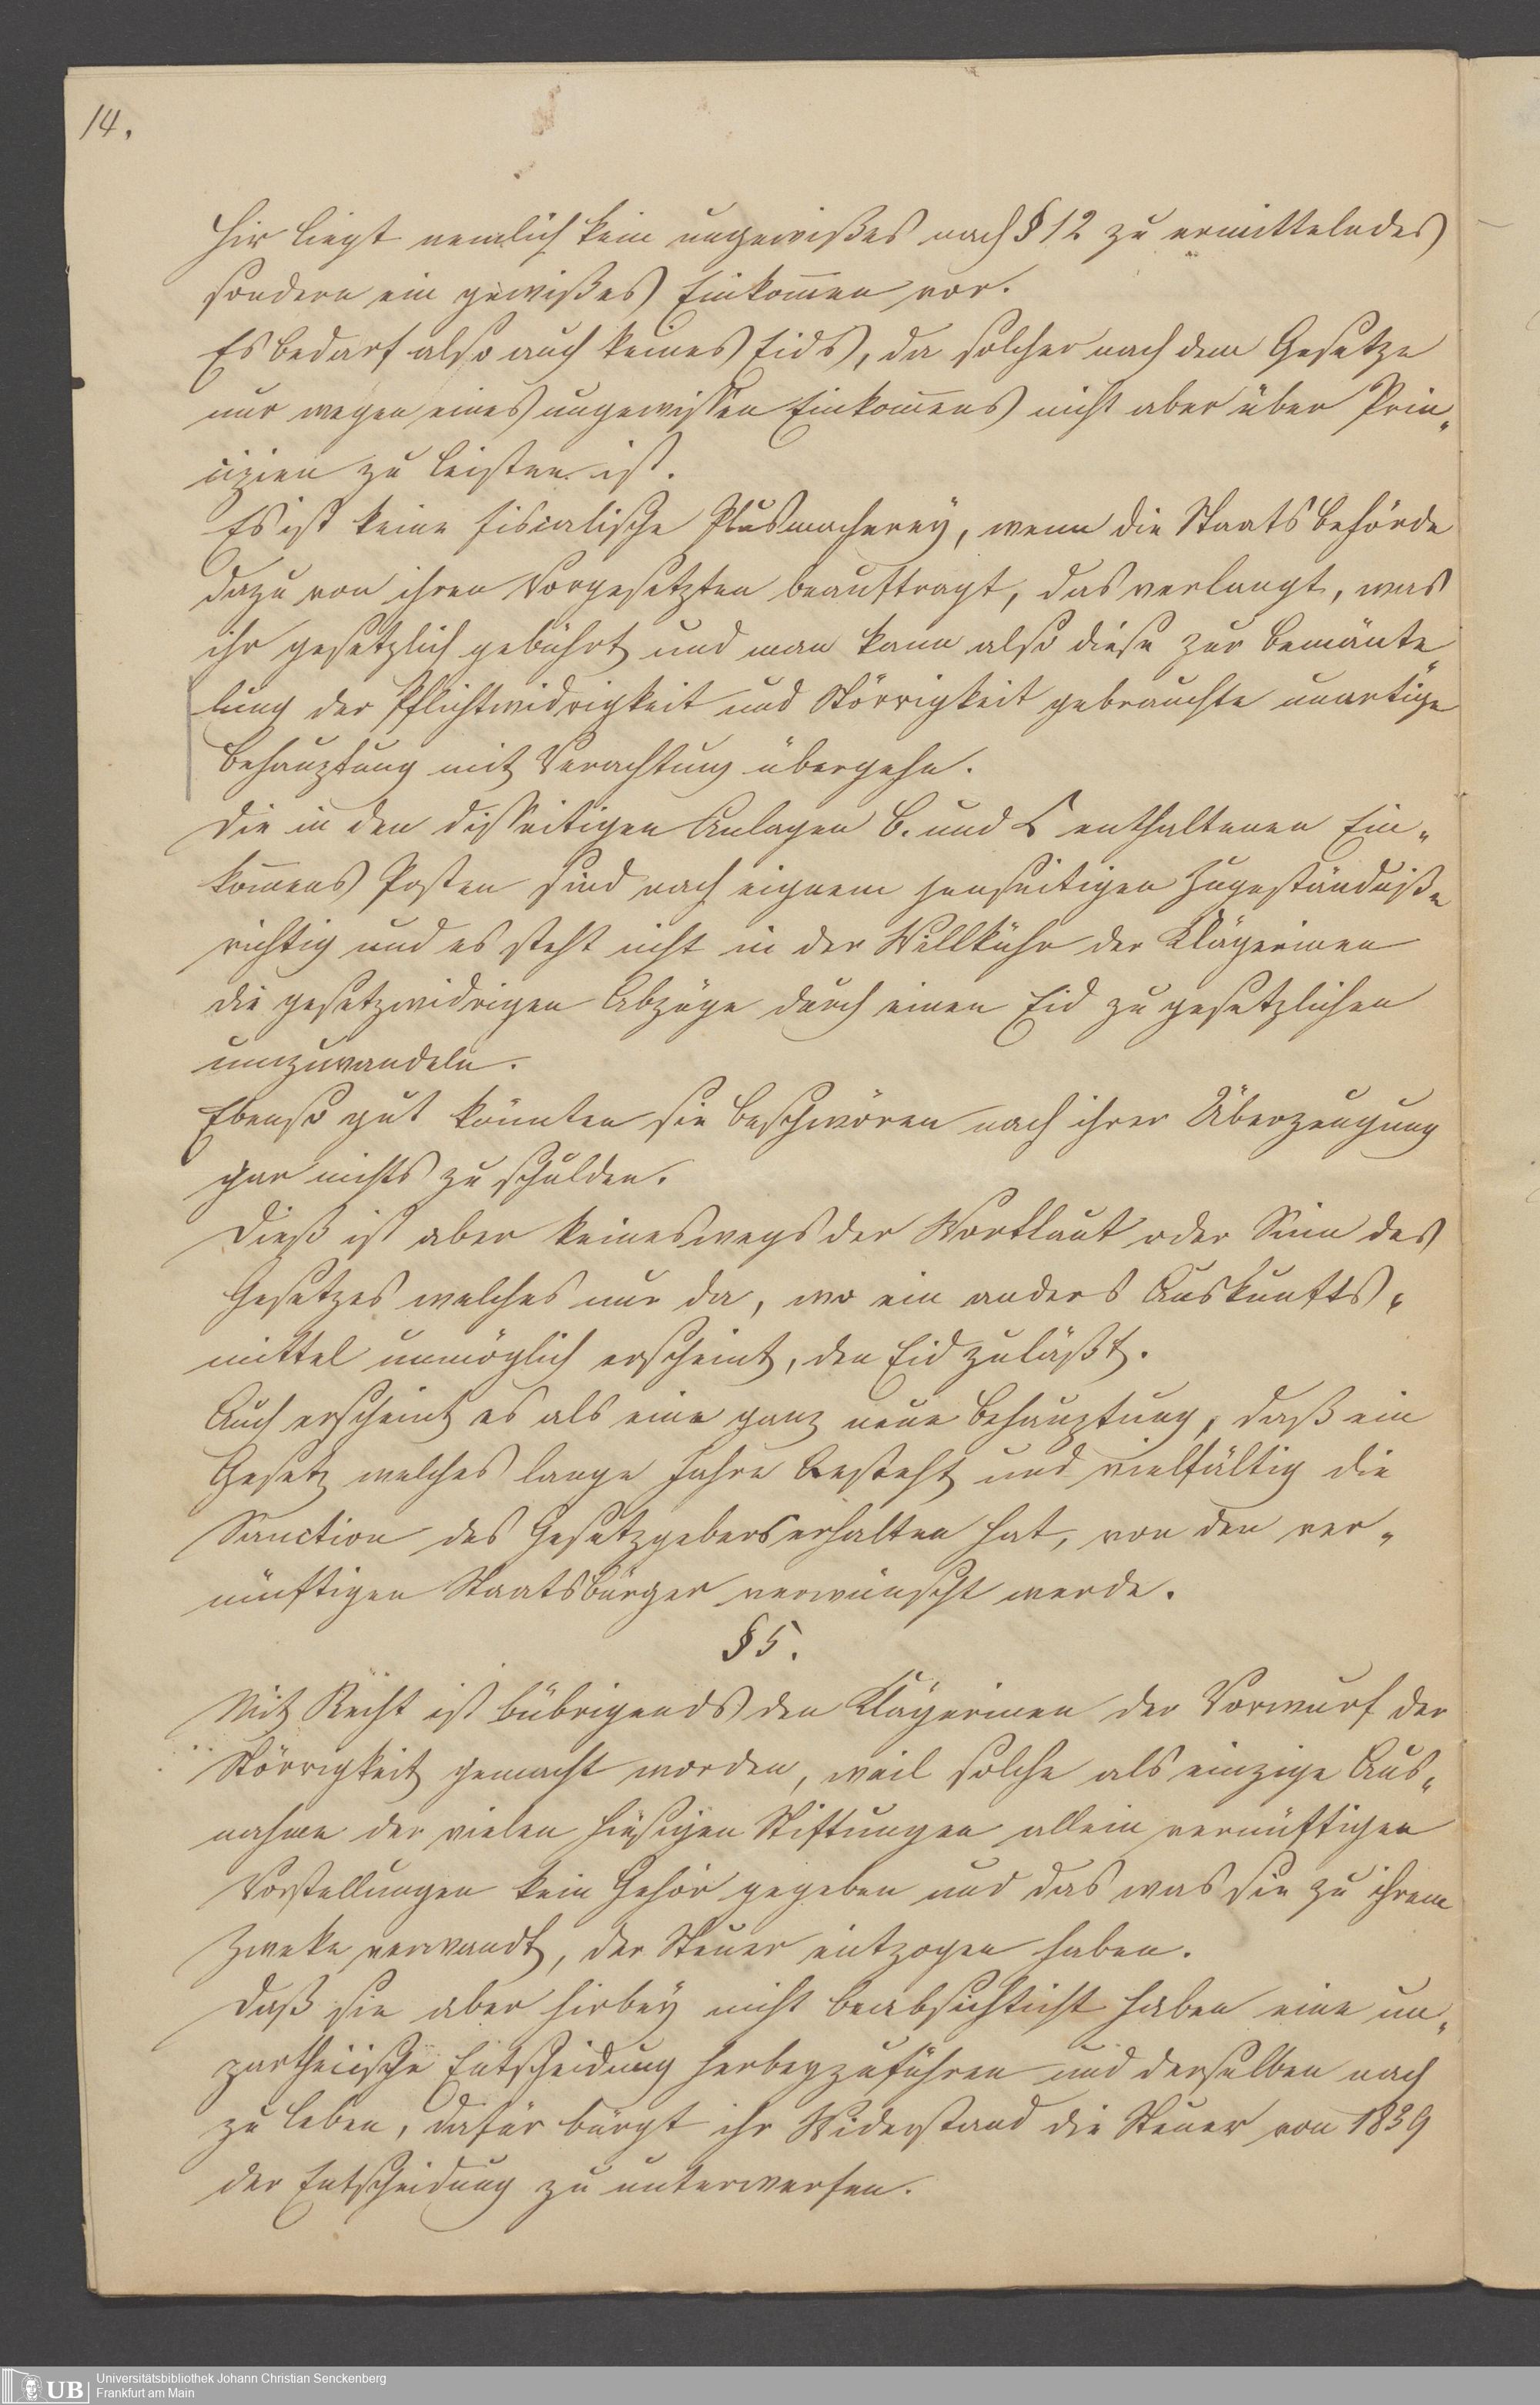 14.
Hir liegt nemlich kein ungewißes nach § 12 zu ermittelndes
sondern ein gewißes Einkommen vor.
Es bedarf also auch keines Eids, da solcher nach dem Gesetze
nur wegen eines ungewissen Einkommens nicht aber über Prin„
cipien zu leisten ist.
Es ist keine fiscalische Plusmacherey, wenn die Staatsbehörde
dazu von ihren Vorgesetzten beauftragt, das verlangt, was
ihr gesetzlich gebührt und man kann also diese zur Bemänte„
lung der Pflichtwidrigkeit und Störrigkeit gebrauchte unartige
Behauptung mit Verachtung übergehn.
Die in den disseitigen Anlagen B. und C enthaltenen Ein„
kommens Posten sind nach eignem jenseitigen Zugeständniße
richtig und es steht nicht in der Willkühr der Klägerinen
die gesetzwidrigen Abzüge durch einen Eid zu gesetzlichen
umzuwandeln.
Ebenso gut könnten sie beschwören nach ihrer Überzeugung
gar nichts zu schulden.
Dieß ist aber keineswegs der Wortlaut oder Sinn des
Gesetzes welches nur da, wo ein anders Auskunfts„
mittel unmöglich erscheint, den Eid zuläßt.
Auch erscheint es als eine ganz neue Behauptung, daß ein
Gesetz welches lange Jahre besteht und vielfältig die
Sanction des Gesetzgebers erhalten hat, von den ver„
nünftigen Staatsbürger verwünscht werde.
§ 5.
Mit Recht ist übrigends den Klägerinen der Vorwurf der
Störrigkeit gemacht worden, weil solche als einzige Aus„
nahme der vielen hiesigen Stiftungen allein vernünftigen
Vorstellungen kein Gehör gegeben und das was sie zu ihrem
Zweke verwandt, der Steuer entzogen haben.
Daß sie aber hirbey nicht beabsichticht haben eine un„
partheiische Entscheidung herbeyzuführen und derselben nach
zu leben, dafür bürgt ihr Widerstand die Steuer von 1839
der Entscheidung zu unterwerfen.
UB
Universitätsbibliothek Johann Christian Senckenberg
Frankfurt am Main